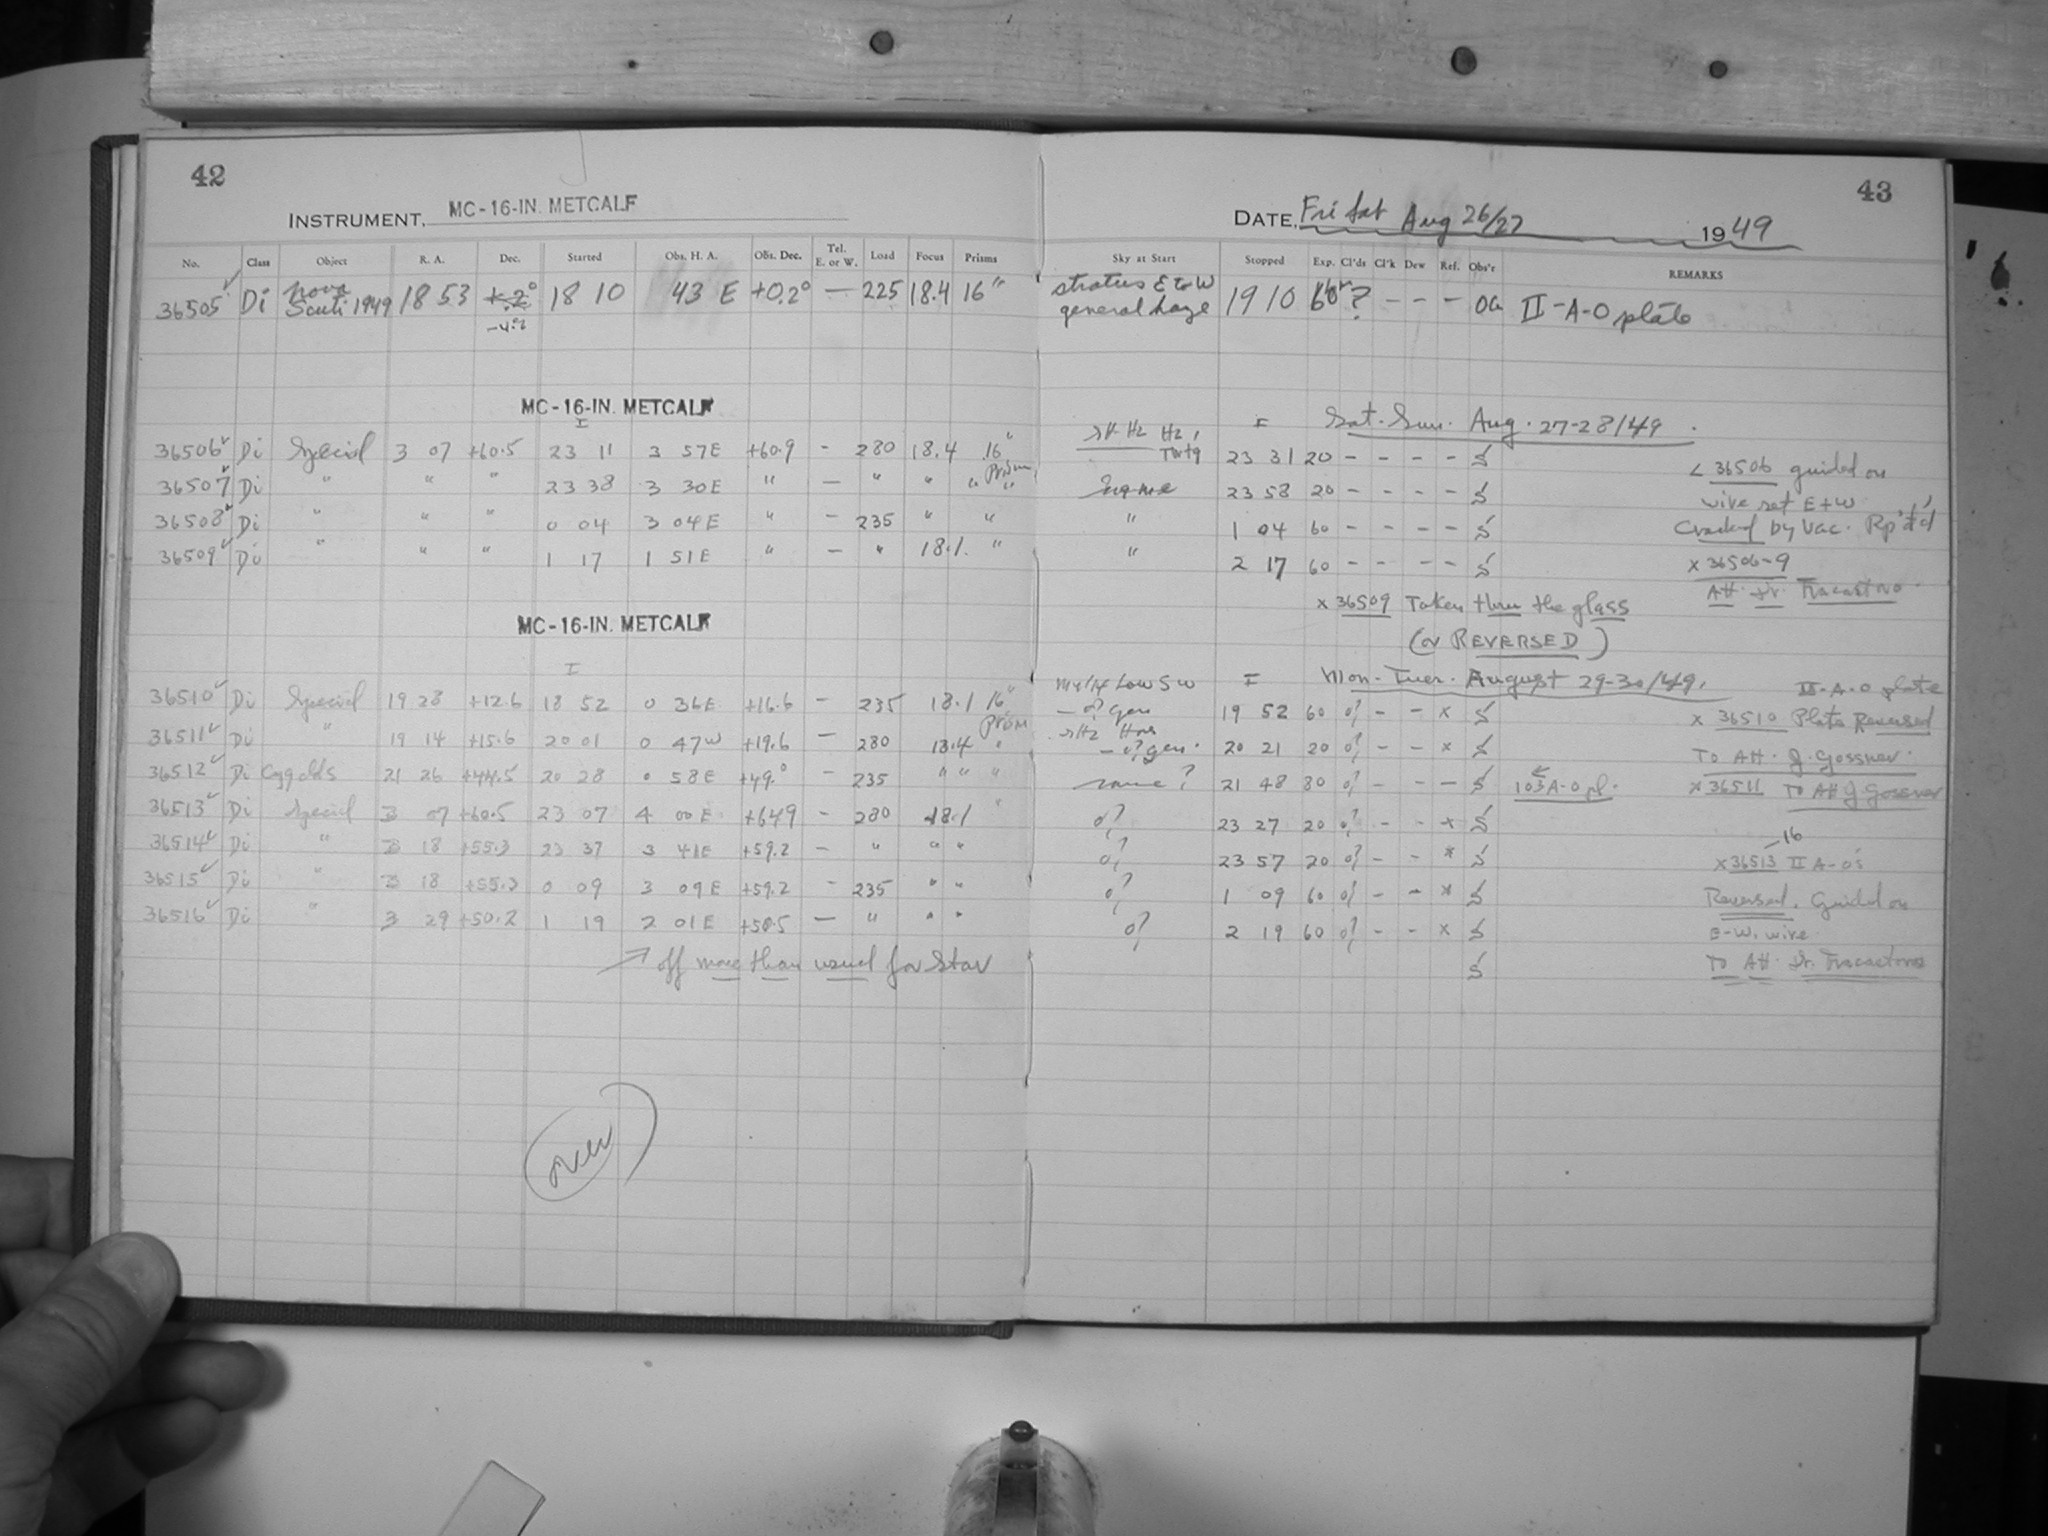 42
INSTRUMENT, MC-16-IN. METCALF
No. Class Object R. A. Dec. Started Obs. H. A. Obs. Dec. Tel. E. or W. Load Focus Prisms
36505 Di Nova Scuti 1949 18 53 -4.2 18 10 43 E +0.2° — 225 18.4 16"
MC-16-IN. METCALF
I
36506 Di Special 3 07 +60.5 23 11 3 57E +60.9 - 280 18.4 16" Prism
36507 Di " " " 23 38 3 30E " — " " " "
36508 Di " " " 0 04 3 04E " - 235 " "
36509 Di " " " 1 17 1 51E " — " 18.1 "
MC-16-IN. METCALF
I
36510 Di Special 19 28 +12.6 18 52 0 36E +16.6 - 235 18.1 16" Prism
36511 Di " 19 14 +15.6 20 01 0 47W +19.6 - 280 18.4 "
36512 Di Cyg 21 26 +44.5 20 28 0 58E +49.0 - 235 " " "
36513 Di Special 3 07 +60.5 23 07 4 00E +64.9 - 280 18.1 "
36514 Di " 3 18 +55.3 23 37 3 41E +59.2 - " " "
36515 Di " 3 18 +55.3 0 09 3 09E +59.2 - 235 " "
36516 Di " 3 29 +50.2 1 19 2 01E +50.5 — " " "
off more than usual for Star
over
43
DATE, Fri Sat Aug 26/27 1949
Sky at Start Stopped Exp. Cl'ds Cl'k Dew Ref. Obs'r REMARKS
stratus E to W general haze 19 10 60 ? - - - OG II-A-O plate
I Sat. Sun. Aug. 27-28/49.
Hz, Twtg 23 31 20 - - - - S < 36506 guided on
same 23 58 20 - - - - S wire set E+W
" 1 04 60 - - - - S Cracked by Vac. Rp't'd
" 2 17 60 - - - - S x 36506-9
x 36509 Taken thru the glass
(or REVERSED)
I Mon-Tues. August 29-30/49.
Low SW 19 52 60 - - x S II-A-O plate
x 36510 Plate Reversed
20 21 20 - - x S To AH. J. Gossner.
same? 21 48 80 - - - S 103A-O pl. x 36511 To AH J Gossner
23 27 20 - - x S
23 57 20 - - x S x 36513-16 II A-O's
1 09 60 - - x S Reversed. Guided on
2 19 60 - - x S E-W. wire
S To AH. Dr.